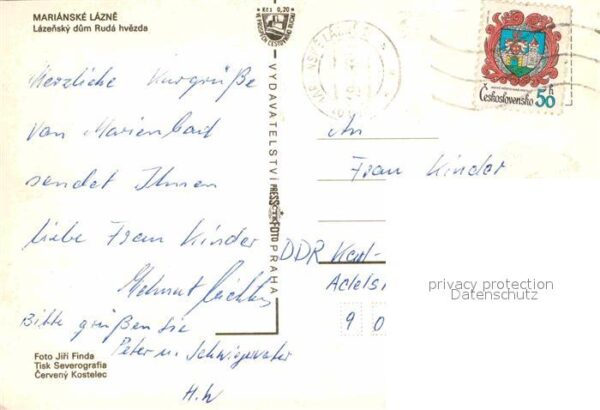 MARIÁNSKÉ LÁZNĚ
Lázeňský dům Rudá hvězda
Kčs 0,20
VYDAVATELSTVÍ PRESSFOTO PRAHA
Československo 50 h
Herzliche Kurgrüße
von Marienbad
sendet Ihnen
liebe Frau Kinder
Helmut
Bitte grüßen Sie
Peter u. Schwiegervater
H. W
An
Frau Kinder
DDR Karl-
Adelsi
9 0
privacy protection
Datenschutz
Foto Jiří Finda
Tisk Severografia
Červený Kostelec